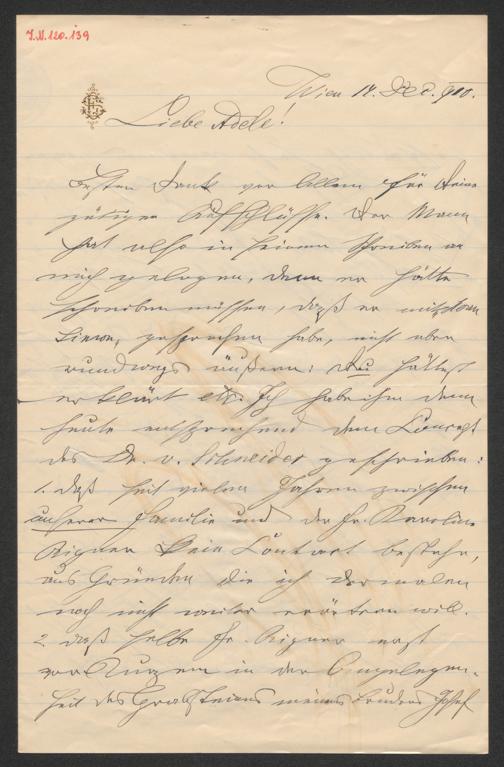 I.N. 120.139
Wien 14. Dez. 900.
Liebe Adele!
Besten Dank vor Allem für Deine
gütigen Aufschlüsse. Der Mann
hat also in seinem Schreiben an
mich gelogen, denn er hätte
schreiben müssen, daß er mit
gesprochen habe, nicht aber
rundwegs äußern: Du hättest
erklärt etc. Ich habe ihm denn
heute entsprechend dem Concept
des Dr. v. Schneider geschrieben:
1. daß seit vielen Jahren zwischen
unserer Familie und der Fr. Karoline
Rigner kein Contact bestehe,
aus Gründen die ich dermalen
noch nicht weiter erörtern will.
2. daß selbe Fr. Rigner erst
vor Kurzem in der Angelegen-
heit des Grabsteines meines Bruders Josef